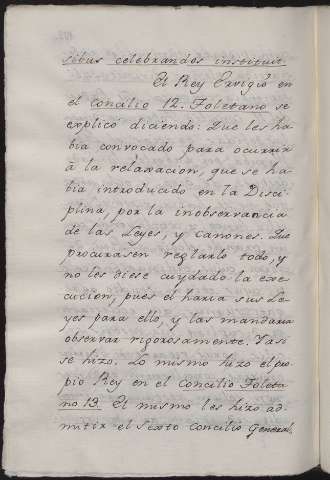 sibus celebrandos instituit.
El Rey Ervigio en
el Concilio 12. Toletano se
explicó diciendo: Que les ha-
bia convocado para ocurrir
à la relaxacion, que se ha-
bia introducido en la Disci-
plina, por la inobservancia
de las Leyes, y canones. Que
procurasen reglarlo todo, y
no les diese cuydado la exe-
cucion, pues él haria sus Le-
yes para ello, y las mandaria
observar rigorosamente. Y asi
se hizo. Lo mismo hizo el pro-
pio Rey en el Concilio Toleta-
no 13. El mismo les hizo ad-
mitir el Sexto Concilio General